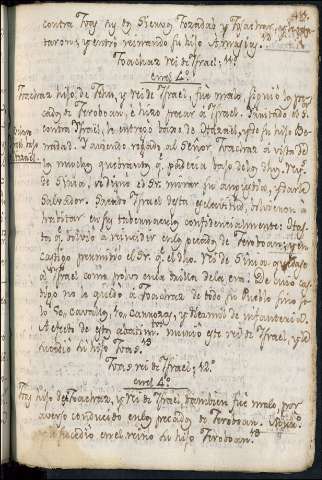 contra Joas ny en Siervos Jozadad y Joachar,
taron; y entró reinando su hijo Amasias.
Joachaz rei de Israel; 11º
en el 4º
Joachaz hijo de Jehu, y rei de Israel, fue malo, siguió los pe
cados de Jeroboan, e hizo pecar á Israel. Irritado el S.
contra Israel, lo entregó baxo de Hazael, y de su hijo Be
nadad. Haviendo rogado al Señor Joachaz á vista de
los muchos quebrantos q. padecia baxo de los dhos Reys
de Siria, vedino el Sr. mirar su angustia, y darle
Salvador. Sacado Israel desta esclavitud, volvieron á
habitar en sus tabernaculos confidencialmente: Has
ta q. volvió á reincidir en los pecados de Jeroboan; y en
castigo permitió el Sr. q. el dho. rei de Siria
á Israel como polvo en la trilla de la era. De cuio cas
tigo no le quedó á Joachaz de todo su Pueblo sino so
lo 50, cavallos, 10, carrozas, y 10 mil de infanteria.
A efecto de estos abatim.tos murió este rei de Israel, y le
sucedió su hijo Joas. 13
Joas rei de Israel; 12º
en el 4º
Joas hijo de Joachaz, y rei de Israel tambien fue malo, por
averse conducido en los pecados de Jeroboan. Murió
y le sucedió en el reino su hijo Jeroboan. 13